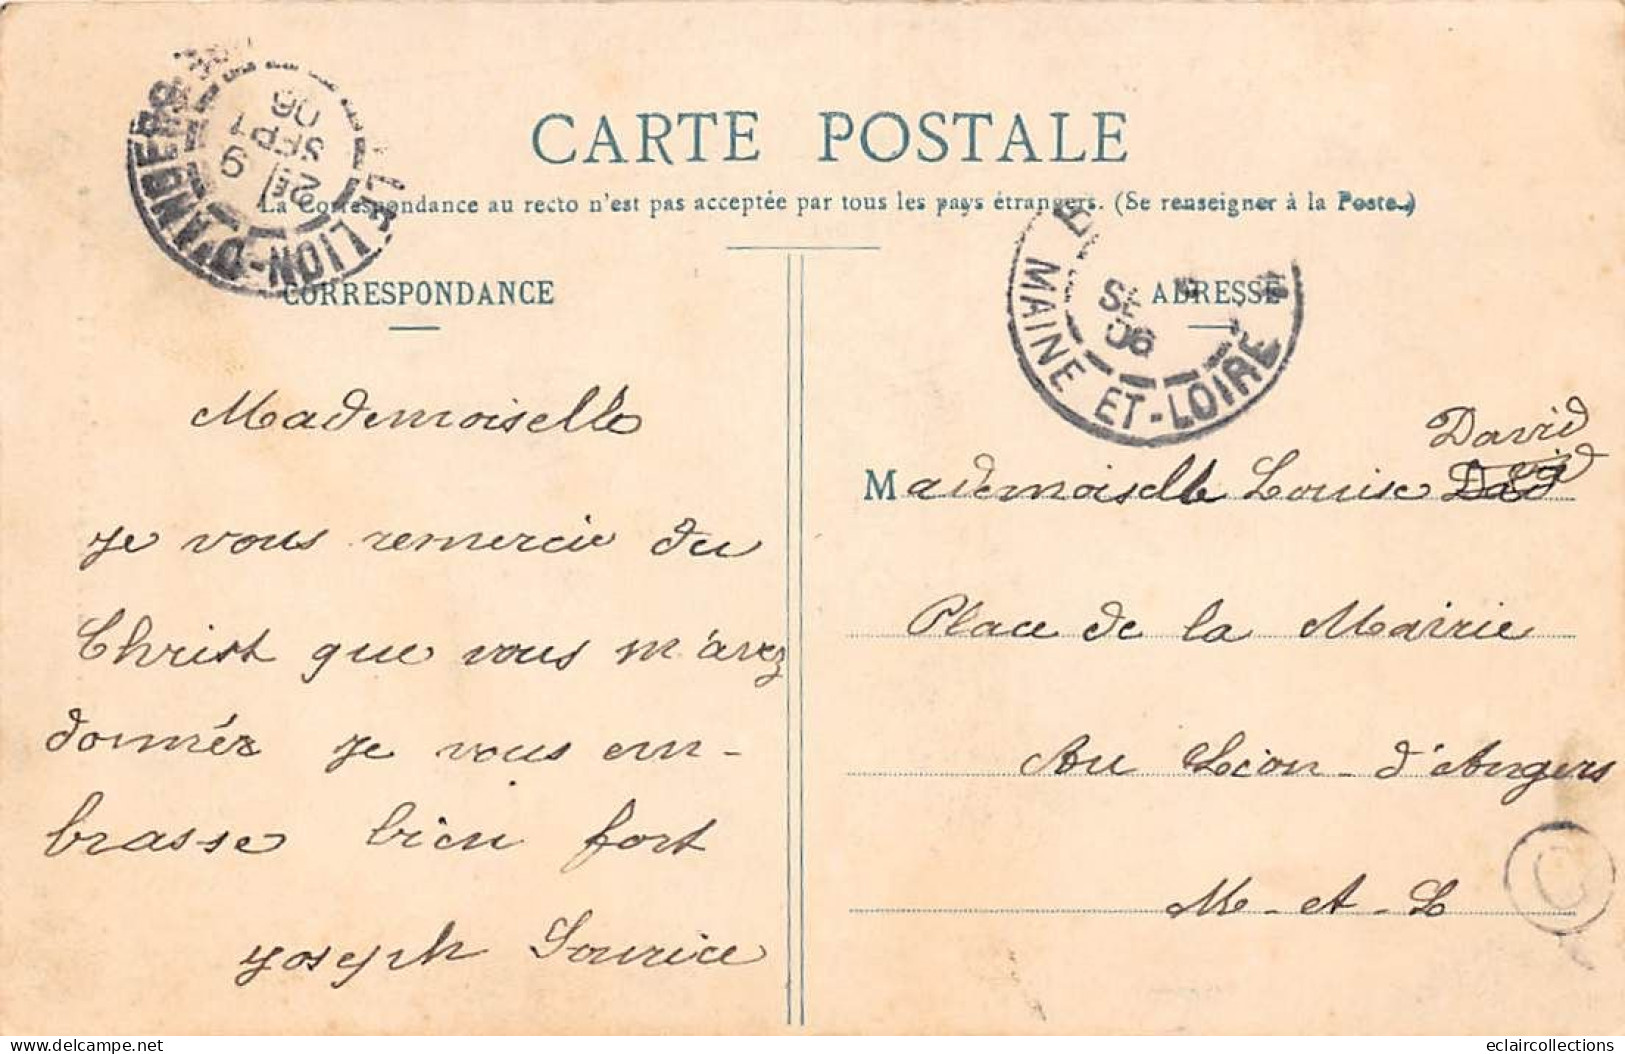 CARTE POSTALE
La Correspondance au recto n'est pas acceptée par tous les pays étrangers. (Se renseigner à la Poste.)
LE LION-D'ANGERS
9
SEPT
06
CORRESPONDANCE
Mademoiselle
Je vous remercie du
Christ que vous m'avez
donnéz je vous em-
brasse bien fort
Joseph Sourice
MAINE ET-LOIRE
06
ADRESSE
David
Mademoiselle Louise
Place de la Mairie
Au Lion-d'Angers
M-et-L
C
delcampe.net
eclaircollections